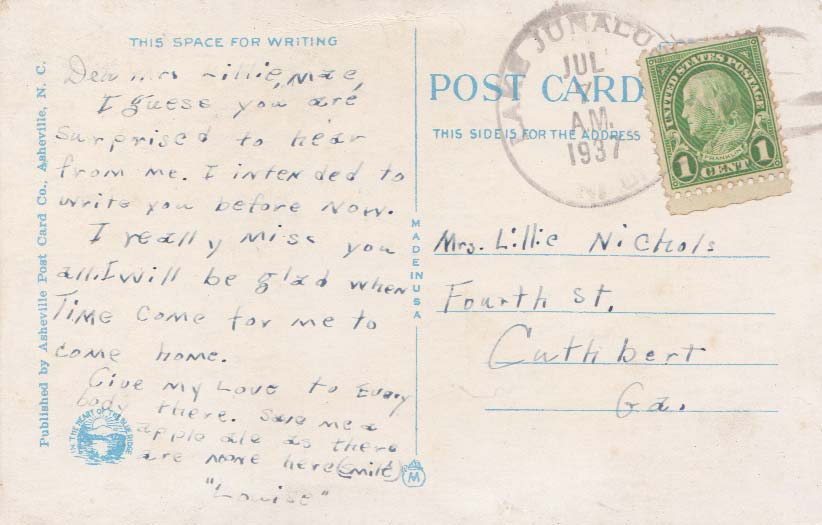 THIS SPACE FOR WRITING
Dear Mrs Lillie Mae,
I guess you are
surprised to hear
from me. I intended to
write you before now.
I really miss you
all. I will be glad when
Time come for me to
come home.
Give my Love to Every
body there. Save me a
apple as there
are none here (smile)
"Louise"
Published by Asheville Post Card Co., Asheville, N. C.
IN THE HEART OF THE BLUE RIDGE
MADE IN USA
M
POST CARD
THIS SIDE IS FOR THE ADDRESS
LAKE JUNALU
JUL
7
AM.
1937
N.C.
UNITED STATES POSTAGE
FRANKLIN
1 CENT 1
Mrs. Lillie Nichols
Fourth St.
Cuthbert
Ga.